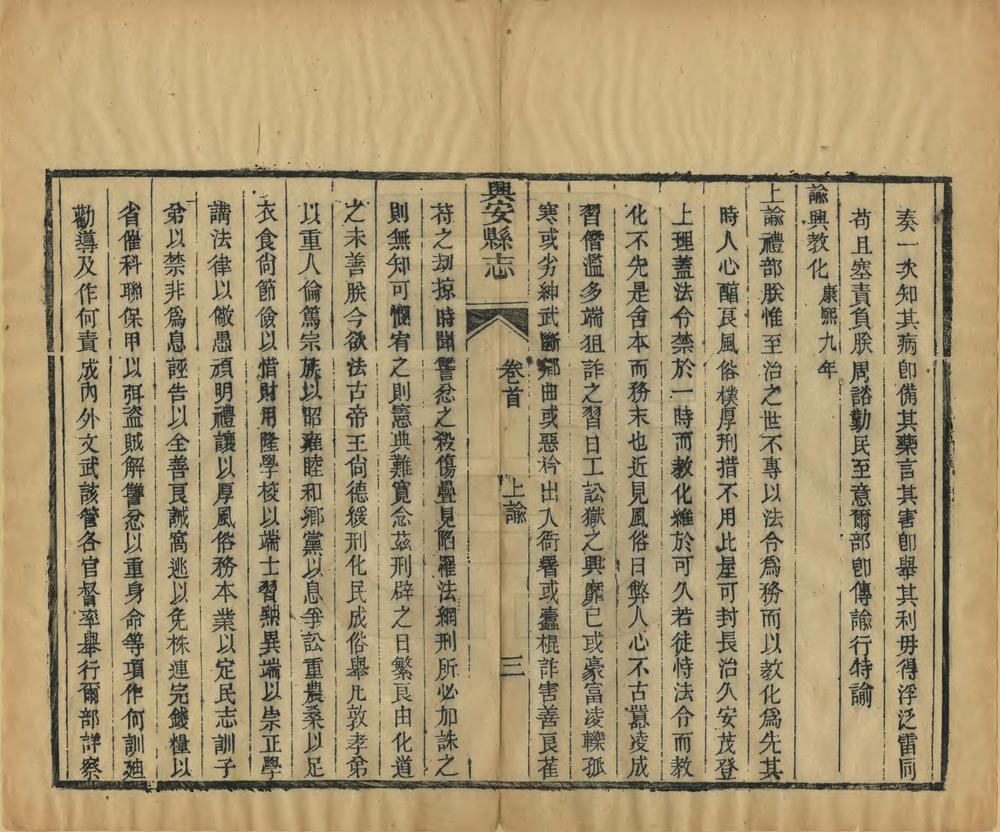 奏一次知其病卽備其藥言其害卽舉其利毋得浮泛雷同
苟且塞責負朕周諮勤民至意爾部卽傳諭行特諭
諭興敎化康熙九年
上諭禮部朕惟至治之世不專以法令爲務而以敎化爲先其
時人心醕良風俗樸厚刑措不用比屋可封長治久安茂登
上理蓋法令禁於一時而敎化維於可久若徒恃法令而敎
化不先是舍本而務末也近見風俗日弊人心不古囂凌成
習僭濫多端狙詐之習日工訟獄之興靡已或豪富凌轢孤
寒或劣紳武斷鄉曲或惡衿出入衙署或蠹棍詐害善良萑
興安縣志
卷首
上諭
三
苻之刧掠時聞讐忿之殺傷疊見陷罹法網刑所必加誅之
則無知可憫宥之則憲典難寬念茲刑辟之日繁良由化道
之未善朕今欲法古帝王尙德緩刑化民成俗舉凡敦孝弟
以重人倫篤宗族以昭雍睦和鄉黨以息爭訟重農桑以足
衣食尙節儉以惜財用隆學校以端士習黜異端以崇正學
講法律以儆愚頑明禮讓以厚風俗務本業以定民志訓子
弟以禁非爲息誣告以全善良誡窩逃以免株連完錢糧以
省催科聯保甲以弭盜賊解讐忿以重身命等項作何訓廸
勸導及作何責成內外文武該管各官督率舉行爾部詳察